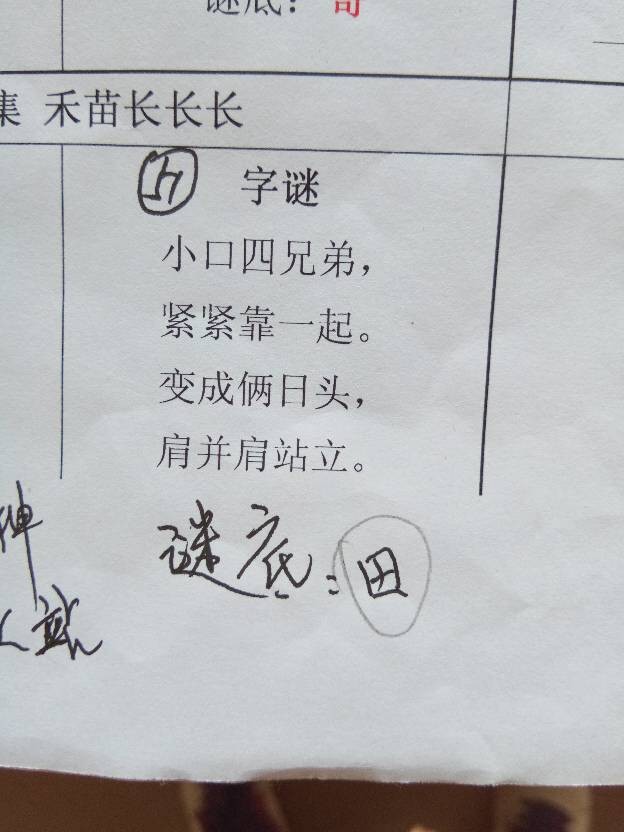 谜底：奇
集 禾苗长长长
字谜
小口四兄弟，
紧紧靠一起。
变成俩日头，
肩并肩站立。
谜底：田